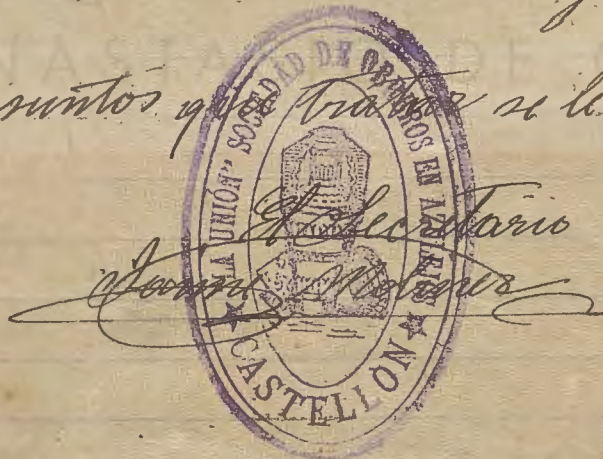 suntos que tratar se le
El Secretario
Jaime Molines
"LA UNIÓN" SOCIEDAD DE OBREROS EN AZULEJOS
★ CASTELLÓN ★